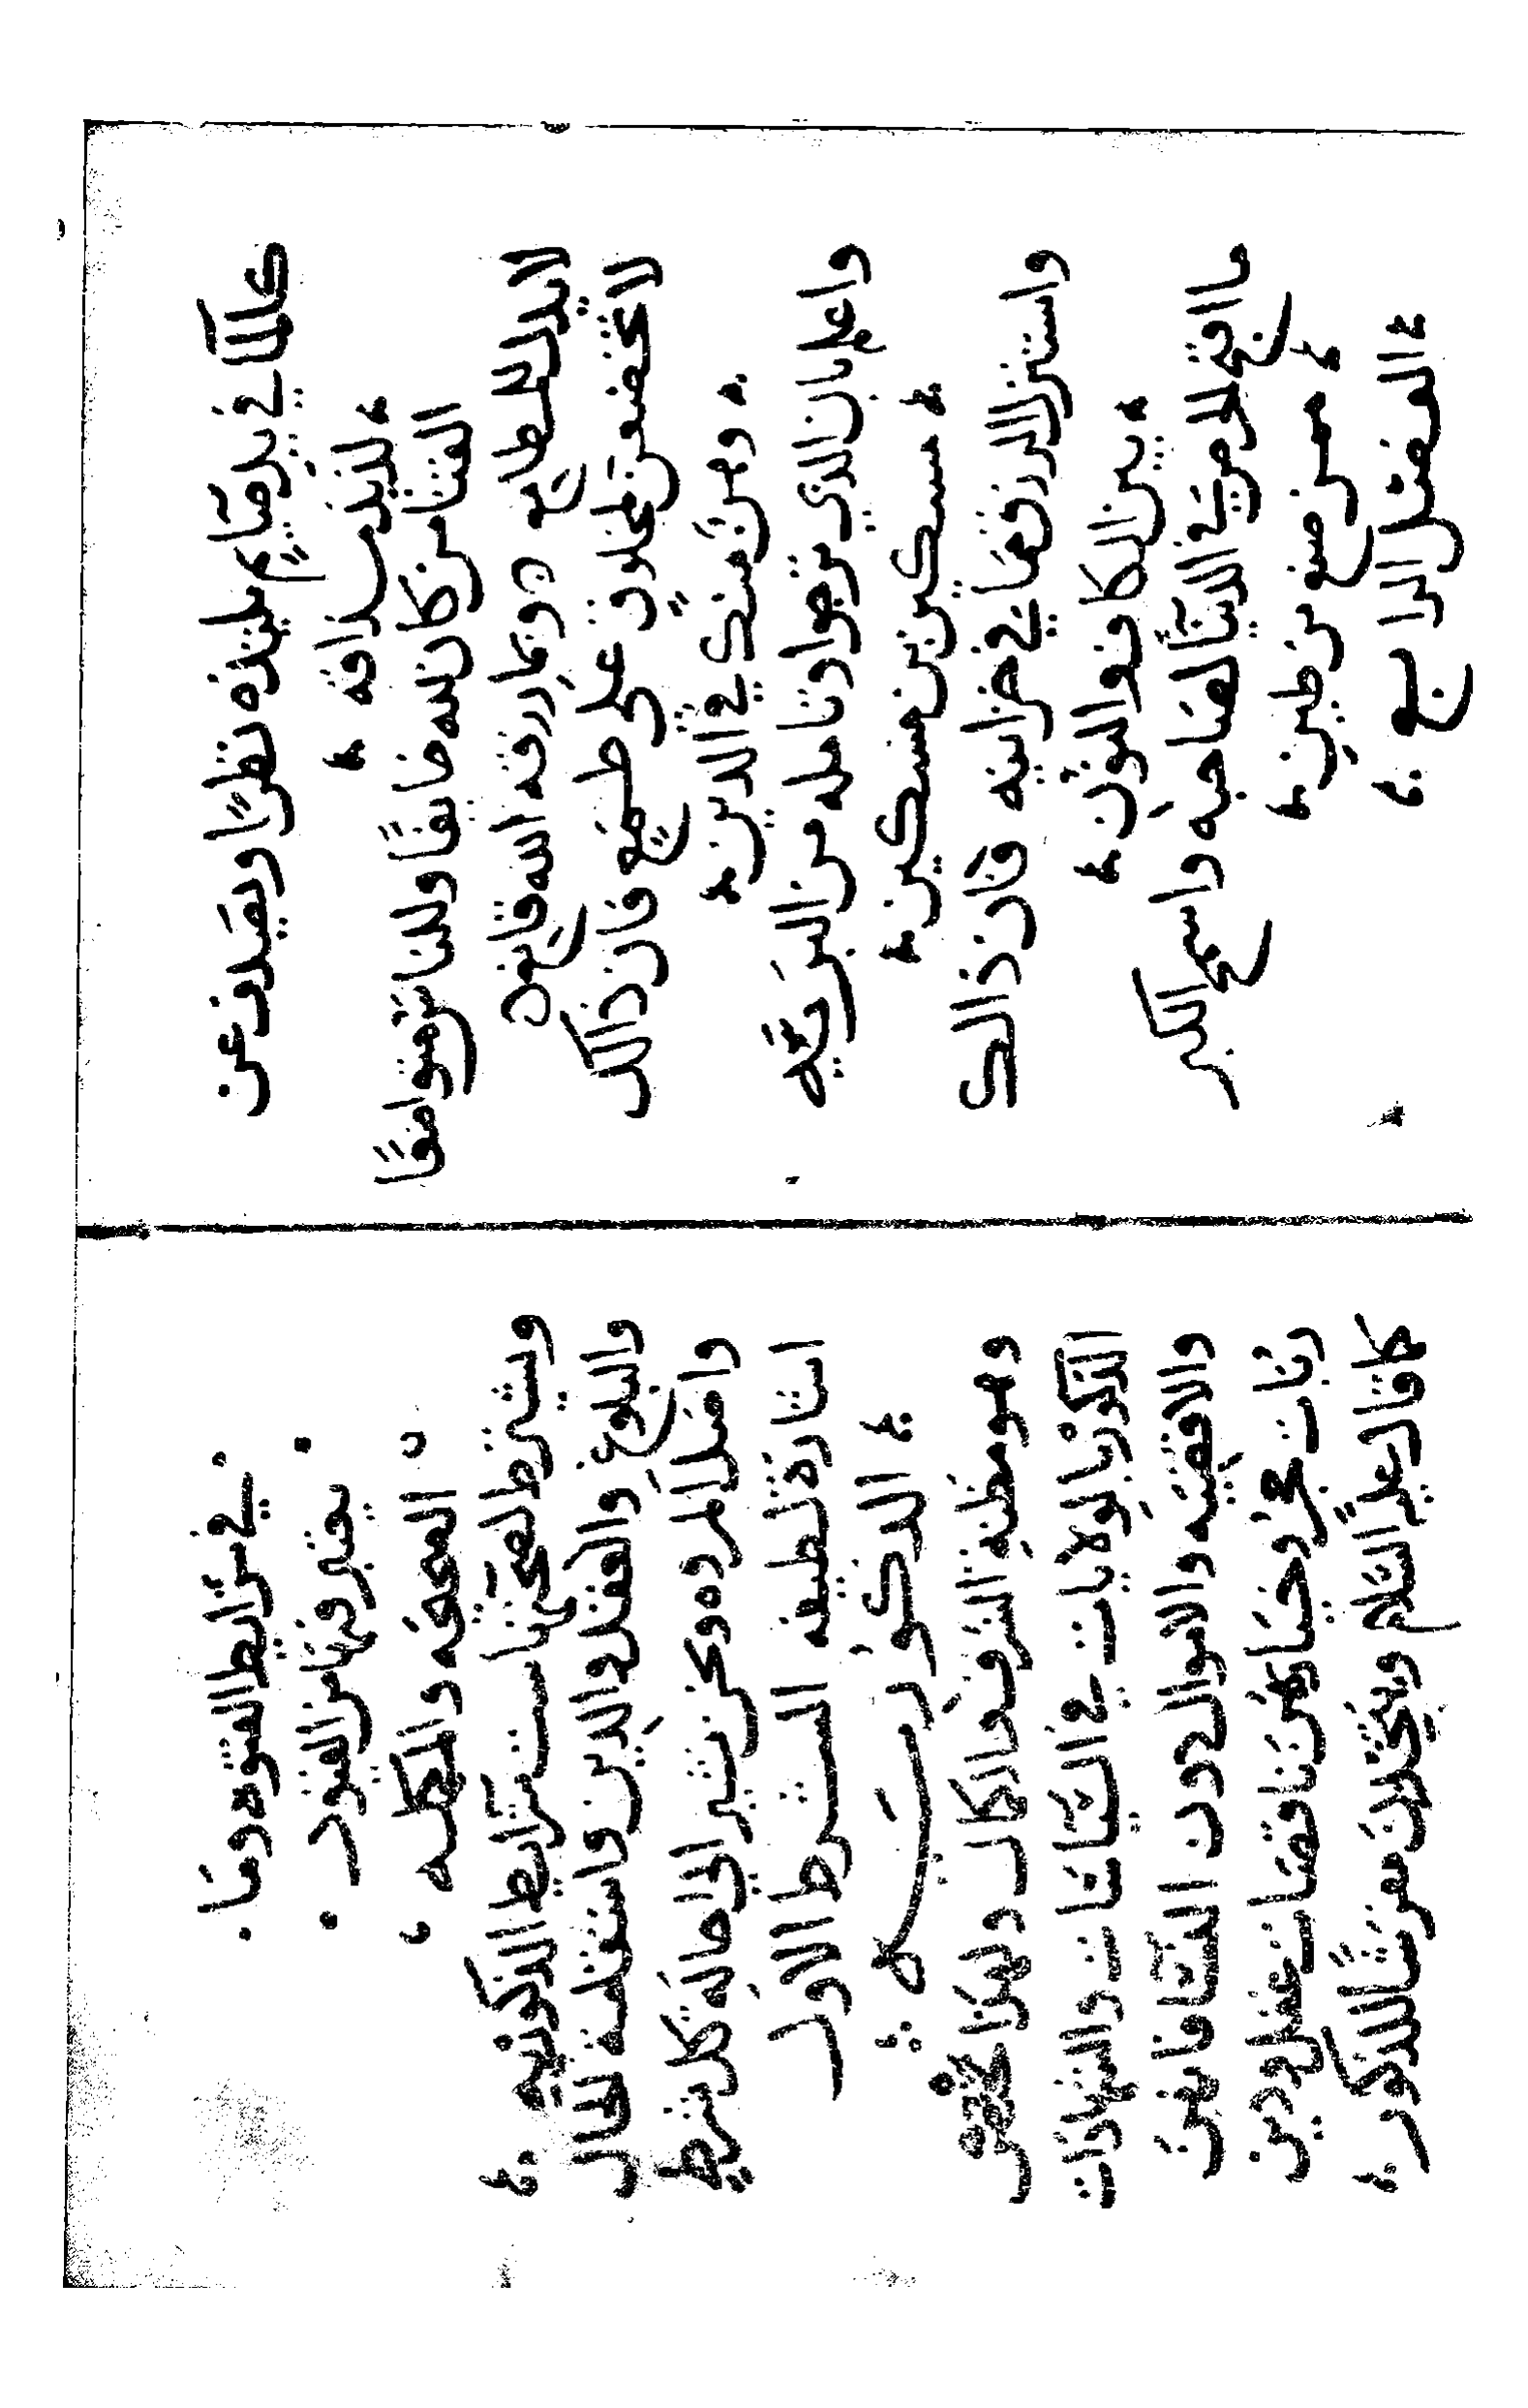 كالماء في يد صائم يلتذه نظرا ويصدف عن
لذيذ مذاقه
من كان لله خايفا
لا يدل للمطامع رزقه الله قانع
لا تخضعن لمخلوق على طمع فان ذاك
وهن منك في الدين
واعلم بان الذي ترجوا وتامله من البريه
مسكين بن مسكين
مما في خزاينه فان ذلك
بين الكاف والنون
ما اقبح الحرص في الدنيا لصاحبه واسمج الكبر
ممن صيغ من طين
الفصل الرابع
في شرايط الفتوه وما
يعتبر فيها من القيود
والمكمله
ويشترط لصحتها ست شرايط الذكوريه
والبلوغ والعقل والدين واستقامة الحال
المروه ونحن نشير الى ماله كل شرط
اشارة لطيفه الشرط الاول
الذكوريه
وهو مظنة الشرف والكمال ولهذا يختص
الذكور بالولايات في السياسات والشهادات
والاقضيه والاموال دون النساء فانهن
ربات عجز ناقصات عقل ودين
كما قال عليه السلام للذكور